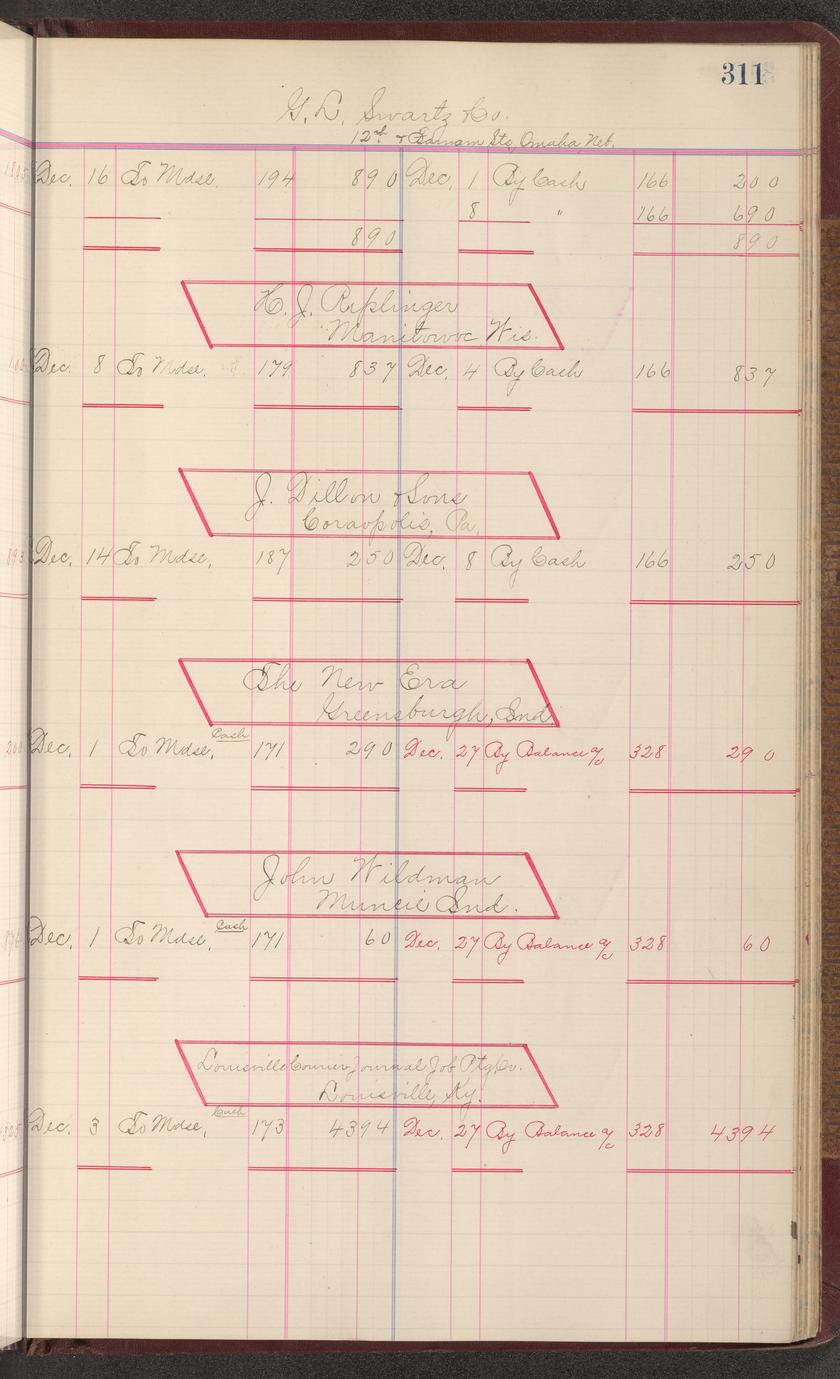 311
G. L. Swartz & Co.
12th & Farnam Sts, Omaha, Neb.
Dec. 16 To Mdse. 194 890 Dec. 1 By Cash 166 200
8 " 166 690
890 890
H. J. Riplinger
Manitowoc Wis.
Dec. 8 To Mdse. 179 837 Dec. 4 By Cash 166 837
J. Dillon & Sons
Coraopolis, Pa.
Dec. 14 To Mdse. 187 250 Dec. 8 By Cash 166 250
The New Era
Greensburgh, Ind
Dec. 1 To Mdse, Cash 171 290 Dec. 27 By Balance a/c 328 290
John Wildman
Muncie Ind.
Dec. 1 To Mdse, Cash 171 60 Dec. 27 By Balance a/c 328 60
Louisville Courier Journal Job Ptg Co.
Louisville, Ky.
Dec. 3 To Mdse, Cash 173 4394 Dec. 27 By Balance a/c 328 4394